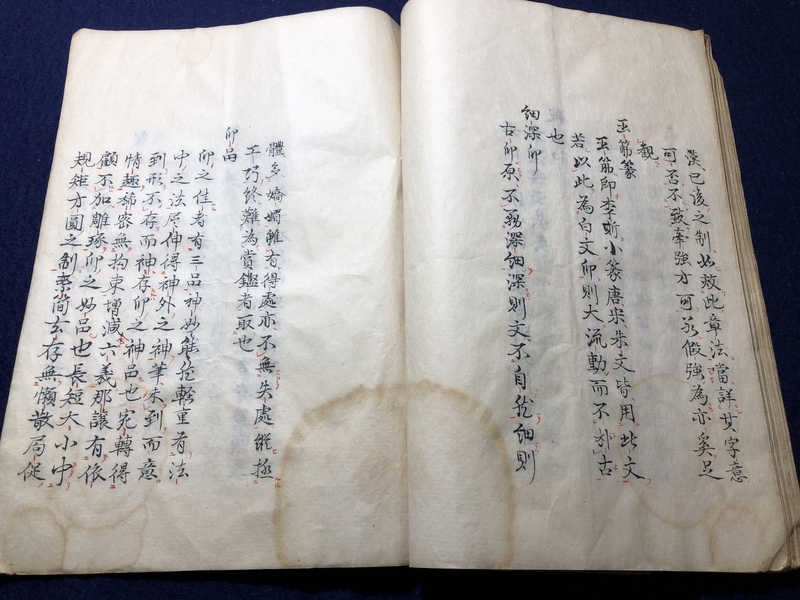 漢已後之制如效此章法當詳其字意
可否不致牽強方可若假強為亦奚足
觀
玉筯篆
玉筯即李斯小篆唐宋朱文皆用此文
若以此為白文印則大流動而不於古
也
細深印
古印原不務深細深則文不自然細則
體多嬌媚雖有得處亦不無失處縱極
工巧終難為賞鑑者取也
印品
印之佳者有三品神妙能然輕重有法
中之法屈伸得神外之神筆未到而意
到形不存而神存印之神品也宛轉得
情趣稀密無拘束增減六義那讓有依
顧不加雕琢印之妙品也長短大小中
規矩方圓之制繁簡去存無懶散局促